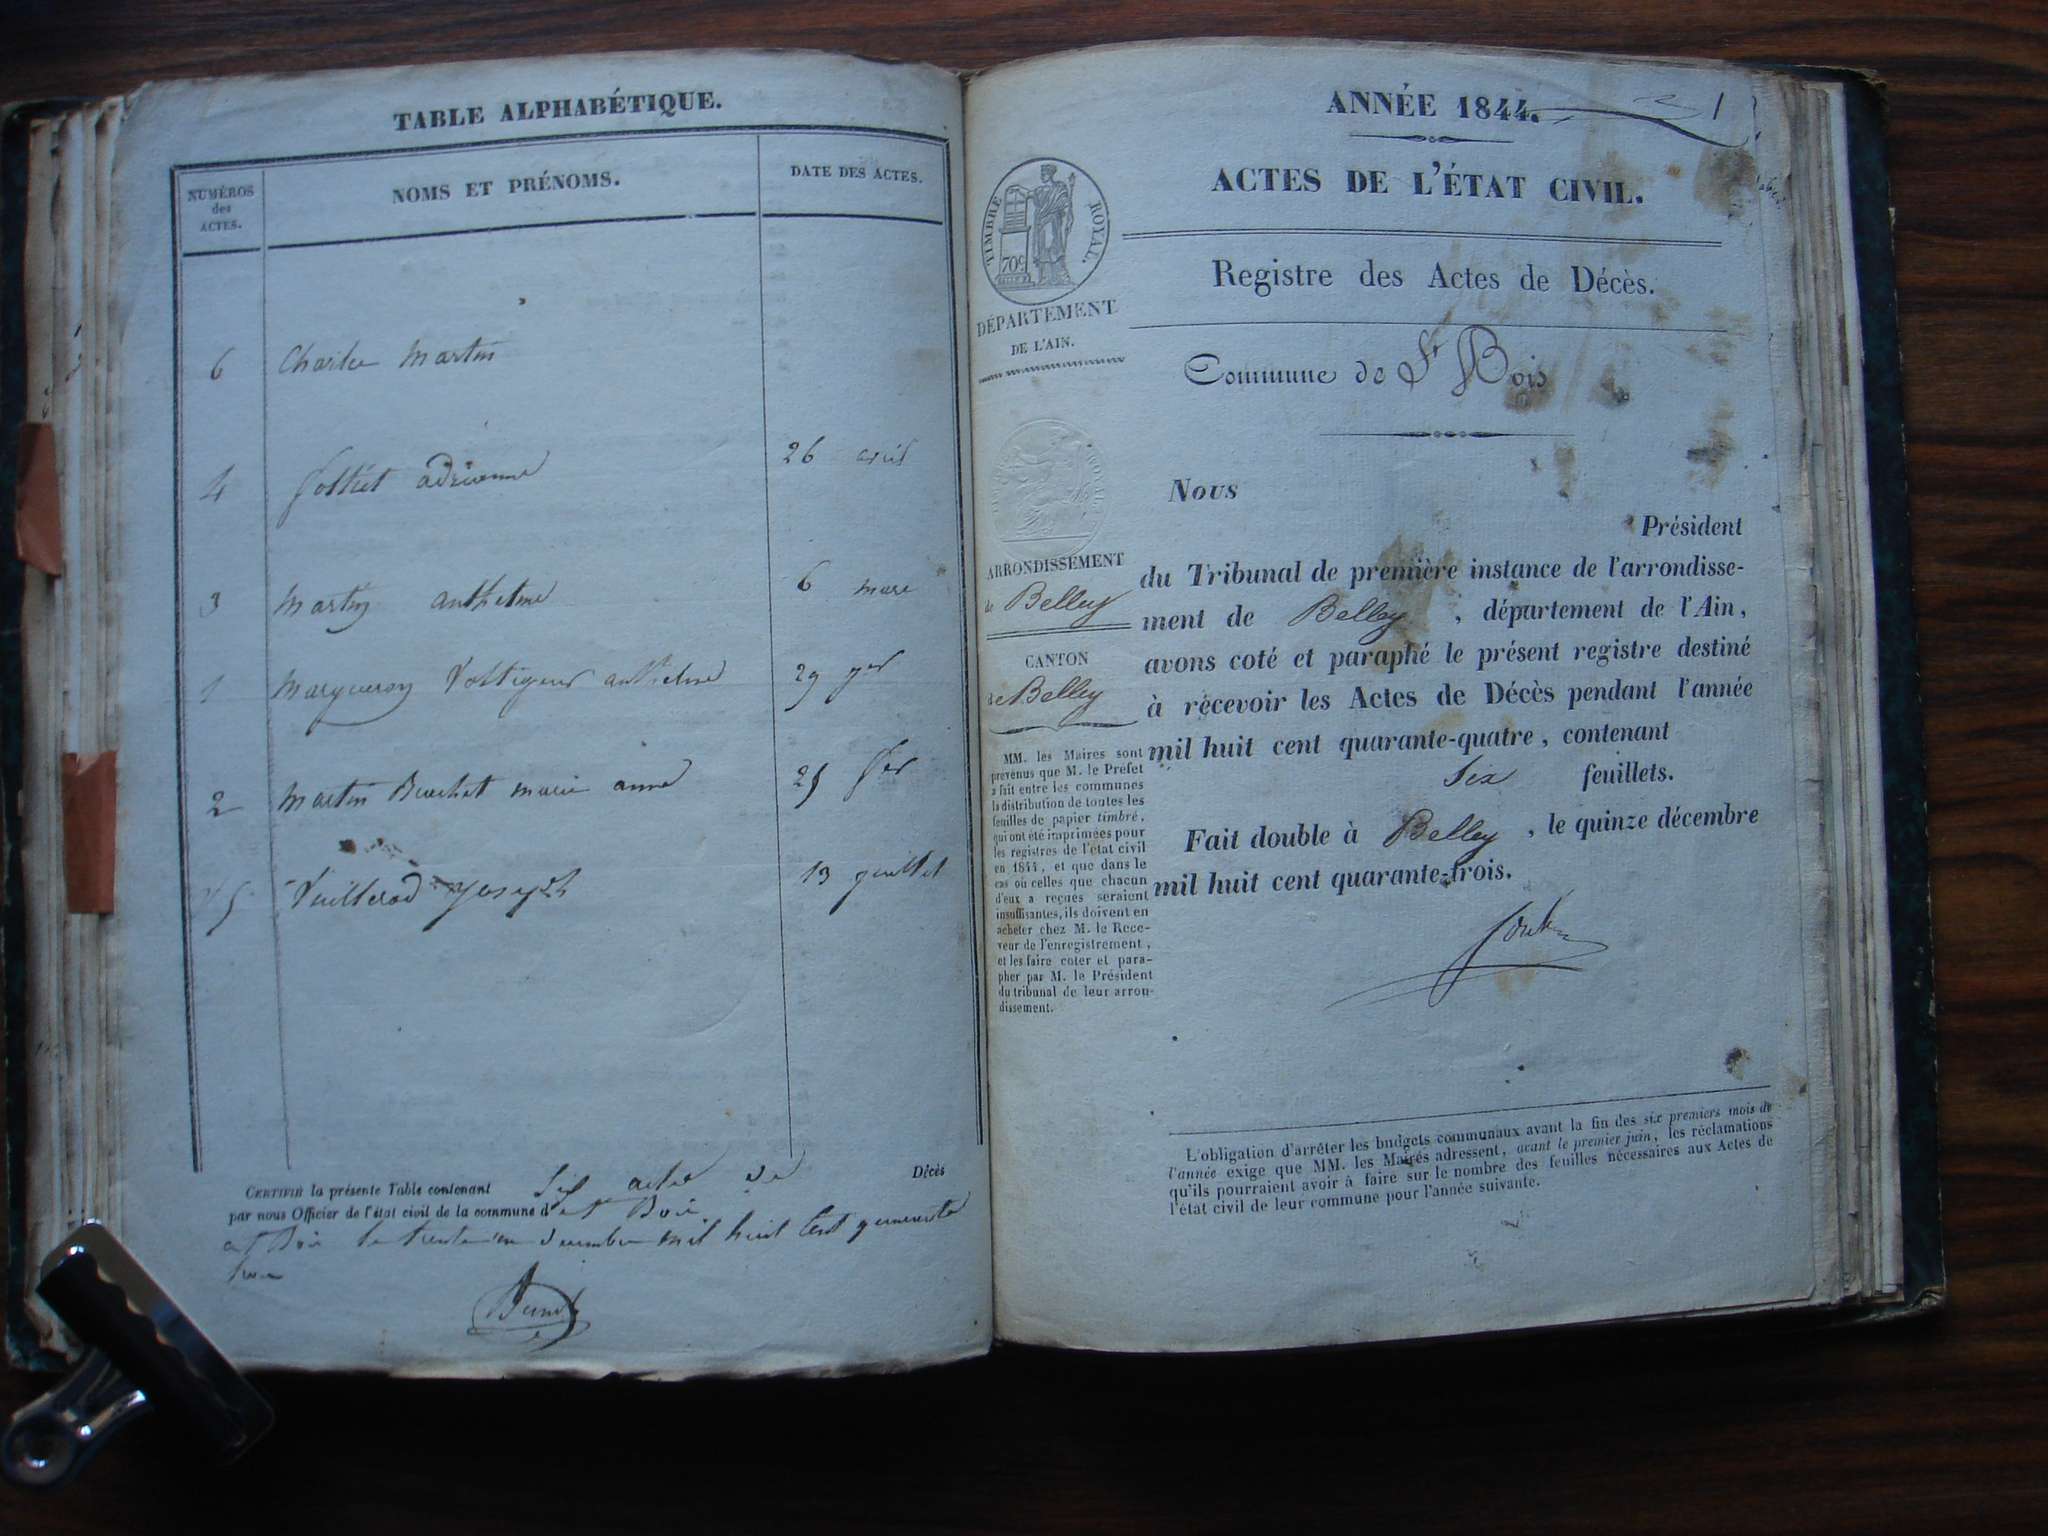 TABLE ALPHABÉTIQUE.
NUMÉROS des ACTES.
NOMS ET PRÉNOMS.
DATE DES ACTES.
6 Charles Martin
4 adrienne 26 avril
3 Martin anthelme 6 mars
1 Margueron Voltigeur anthelme 29 jer
2 Martin Buchet marie anne 25 fer
5 Vuillerod joseph 13 juillet
CERTIFIÉ la présente Table contenant Six actes de Décès
par nous Officier de l'état civil de la commune d St Bois
a St Bois le trente un décembre mil huit Cent quarante
ANNÉE 1844.
1
ACTES DE L'ÉTAT CIVIL.
Registre des Actes de Décès.
Commune de St Bois
TIMBRE ROYAL.
70c
DÉPARTEMENT
DE L'AIN.
ARRONDISSEMENT
de Belley
CANTON
de Belley
MM. les Maires sont
prévenus que M. le Préfet
a fait entre les communes
la distribution de toutes les
feuilles de papier timbré,
qui ont été imprimées pour
les registres de l'état civil
en 1844, et que dans le
cas où celles que chacun
d'eux a reçues seraient
insuffisantes, ils doivent en
acheter chez M. le Rece-
veur de l'enregistrement,
et les faire coter et para-
pher par M. le Président
du tribunal de leur arron-
dissement.
Nous
Président
du Tribunal de première instance de l'arrondisse-
ment de Belley, département de l'Ain,
avons coté et paraphé le présent registre destiné
à recevoir les Actes de Décès pendant l'année
mil huit cent quarante-quatre, contenant
Six feuillets.
Fait double à Belley, le quinze décembre
mil huit cent quarante-trois.
L'obligation d'arrêter les budgets communaux avant la fin des six premiers mois de
l'année exige que MM. les Maires adressent, avant le premier juin, les réclamations
qu'ils pourraient avoir à faire sur le nombre des feuilles nécessaires aux Actes de
l'état civil de leur commune pour l'année suivante.